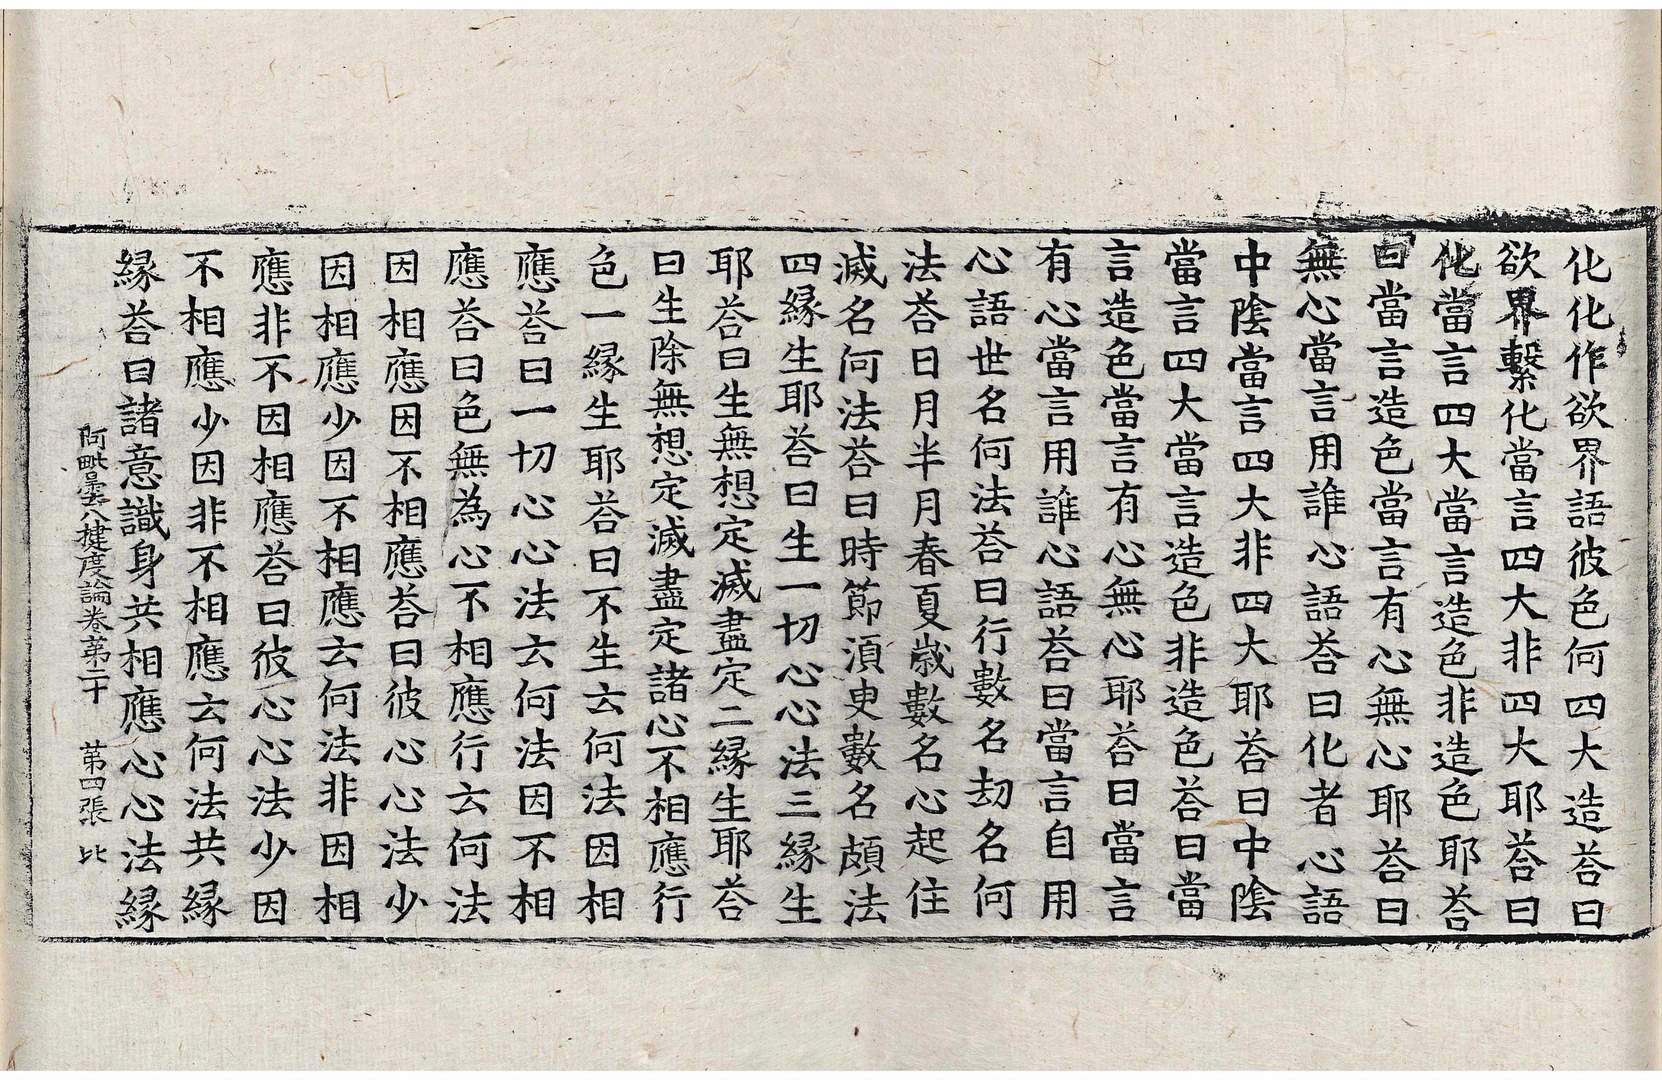 化化作欲界語彼色何四大造荅曰
欲界繫化當言四大非四大耶荅曰
化當言四大當言造色非造色耶荅
曰當言造色當言有心無心耶荅曰
無心當言用誰心語荅曰化者心語
中陰當言四大非四大耶荅曰中陰
當言四大當言造色非造色荅曰當
言造色當言有心無心耶荅曰當言
有心當言用誰心語荅曰當言自用
心語世名何法荅曰行數名劫名何
法荅曰月半月春夏歲數名心起住
滅名何法荅曰時節湏臾數名頗法
四緣生耶荅曰生一切心心法三緣生
耶荅曰生無想定滅盡定二緣生耶荅
曰生除無想定滅盡定諸心不相應行
色一緣生耶荅曰不生云何法因相
應荅曰一切心心法云何法因不相
應荅曰色無為心不相應行云何法
因相應因不相應荅曰彼心心法少
因相應少因不相應云何法非因相
應非不因相應荅曰彼心心法少因
不相應少因非不相應云何法共緣
緣荅曰諸意識身共相應心心法緣
阿毗曇八揵度論卷第二十 第四張 比